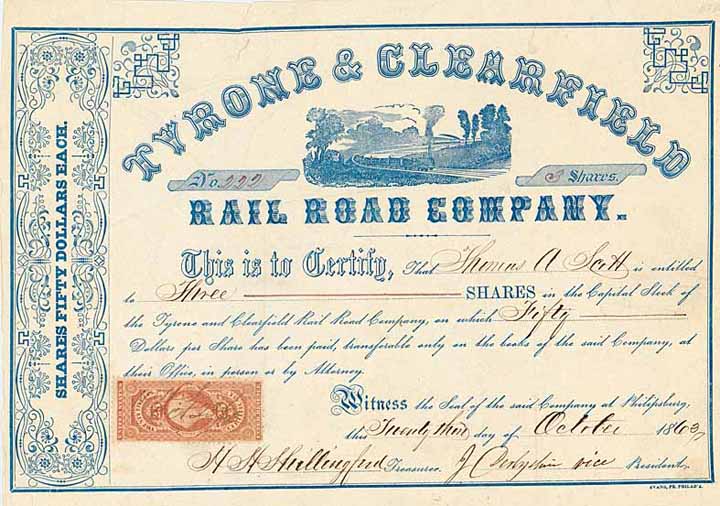 TYRONE & CLEARFIELD
No. 222
3 Shares.
RAIL ROAD COMPANY.
This is to Certify, That Thomas A Scott is entitled
to Three SHARES in the Capital Stock of
the Tyrone and Clearfield Rail Road Company, on which Fifty
Dollars per Share has been paid, transferable only on the books of the said Company, at
their Office, in person or by Attorney.
Witness the Seal of the said Company at Philipsburg,
this Twenty third day of October 1863,
H H Shillingford Treasurer. J vice President.
SHARES FIFTY DOLLARS EACH.
EVANS, PR. PHILAD'A.